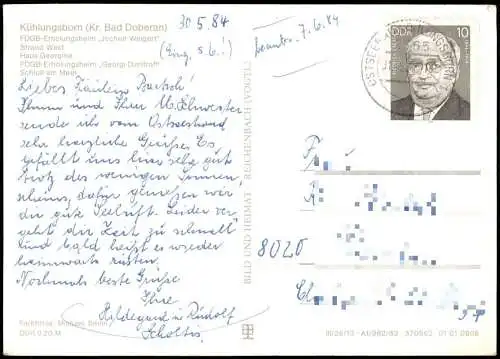 Kühlungsborn (Kr. Bad Doberan)
FDGB-Erholungsheim „Jochen Weigert"
Strand West
Haus Georgine
FDGB-Erholungsheim „Georgi Dimitroff"
Schloß am Meer
30.5.84
(Eing. 5.6.!)
beantw. 7.6.84
Liebes Fräulein Bartsch!
Ihnen und Ihrer Schwester
sende ich vom Ostseestrand
sehr herzliche Grüße. Es
gefällt uns hier sehr gut
trotz des wenigen Sonnen-
scheins, dafür genießen wir
die gute Seeluft. Leider ver-
geht die Zeit zu schnell
und bald heißt es wieder
heimwärts rüsten.
Nochmals beste Grüße
Ihre
Hildegard u. Rudolf
Scholtis
BILD UND HEIMAT REICHENBACH (VOGTL)
DDR
10
8020
Farbfotos:
DDR 0,20 M
01 01 0606